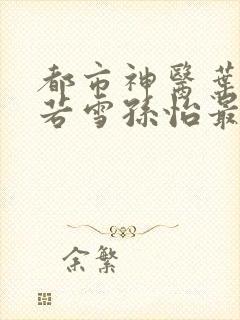 都市神醫葉
若雪孫怡最
余繁